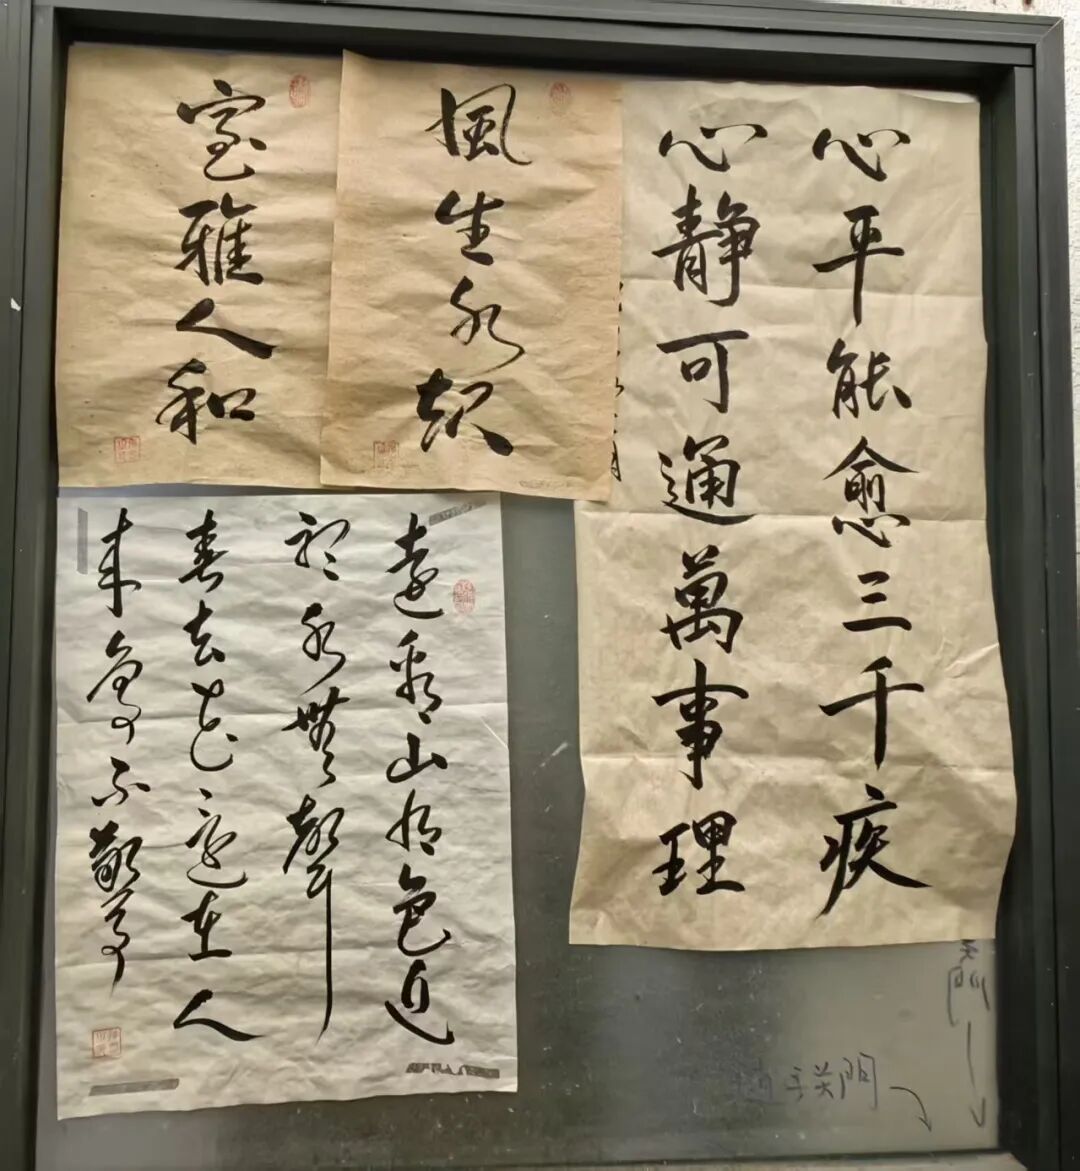 心平能愈三千疾
心静可通萬事理
風生水起
室雅人和
遠看山有色近
聽水無聲
春去花還在人
来鳥不驚
随手关門